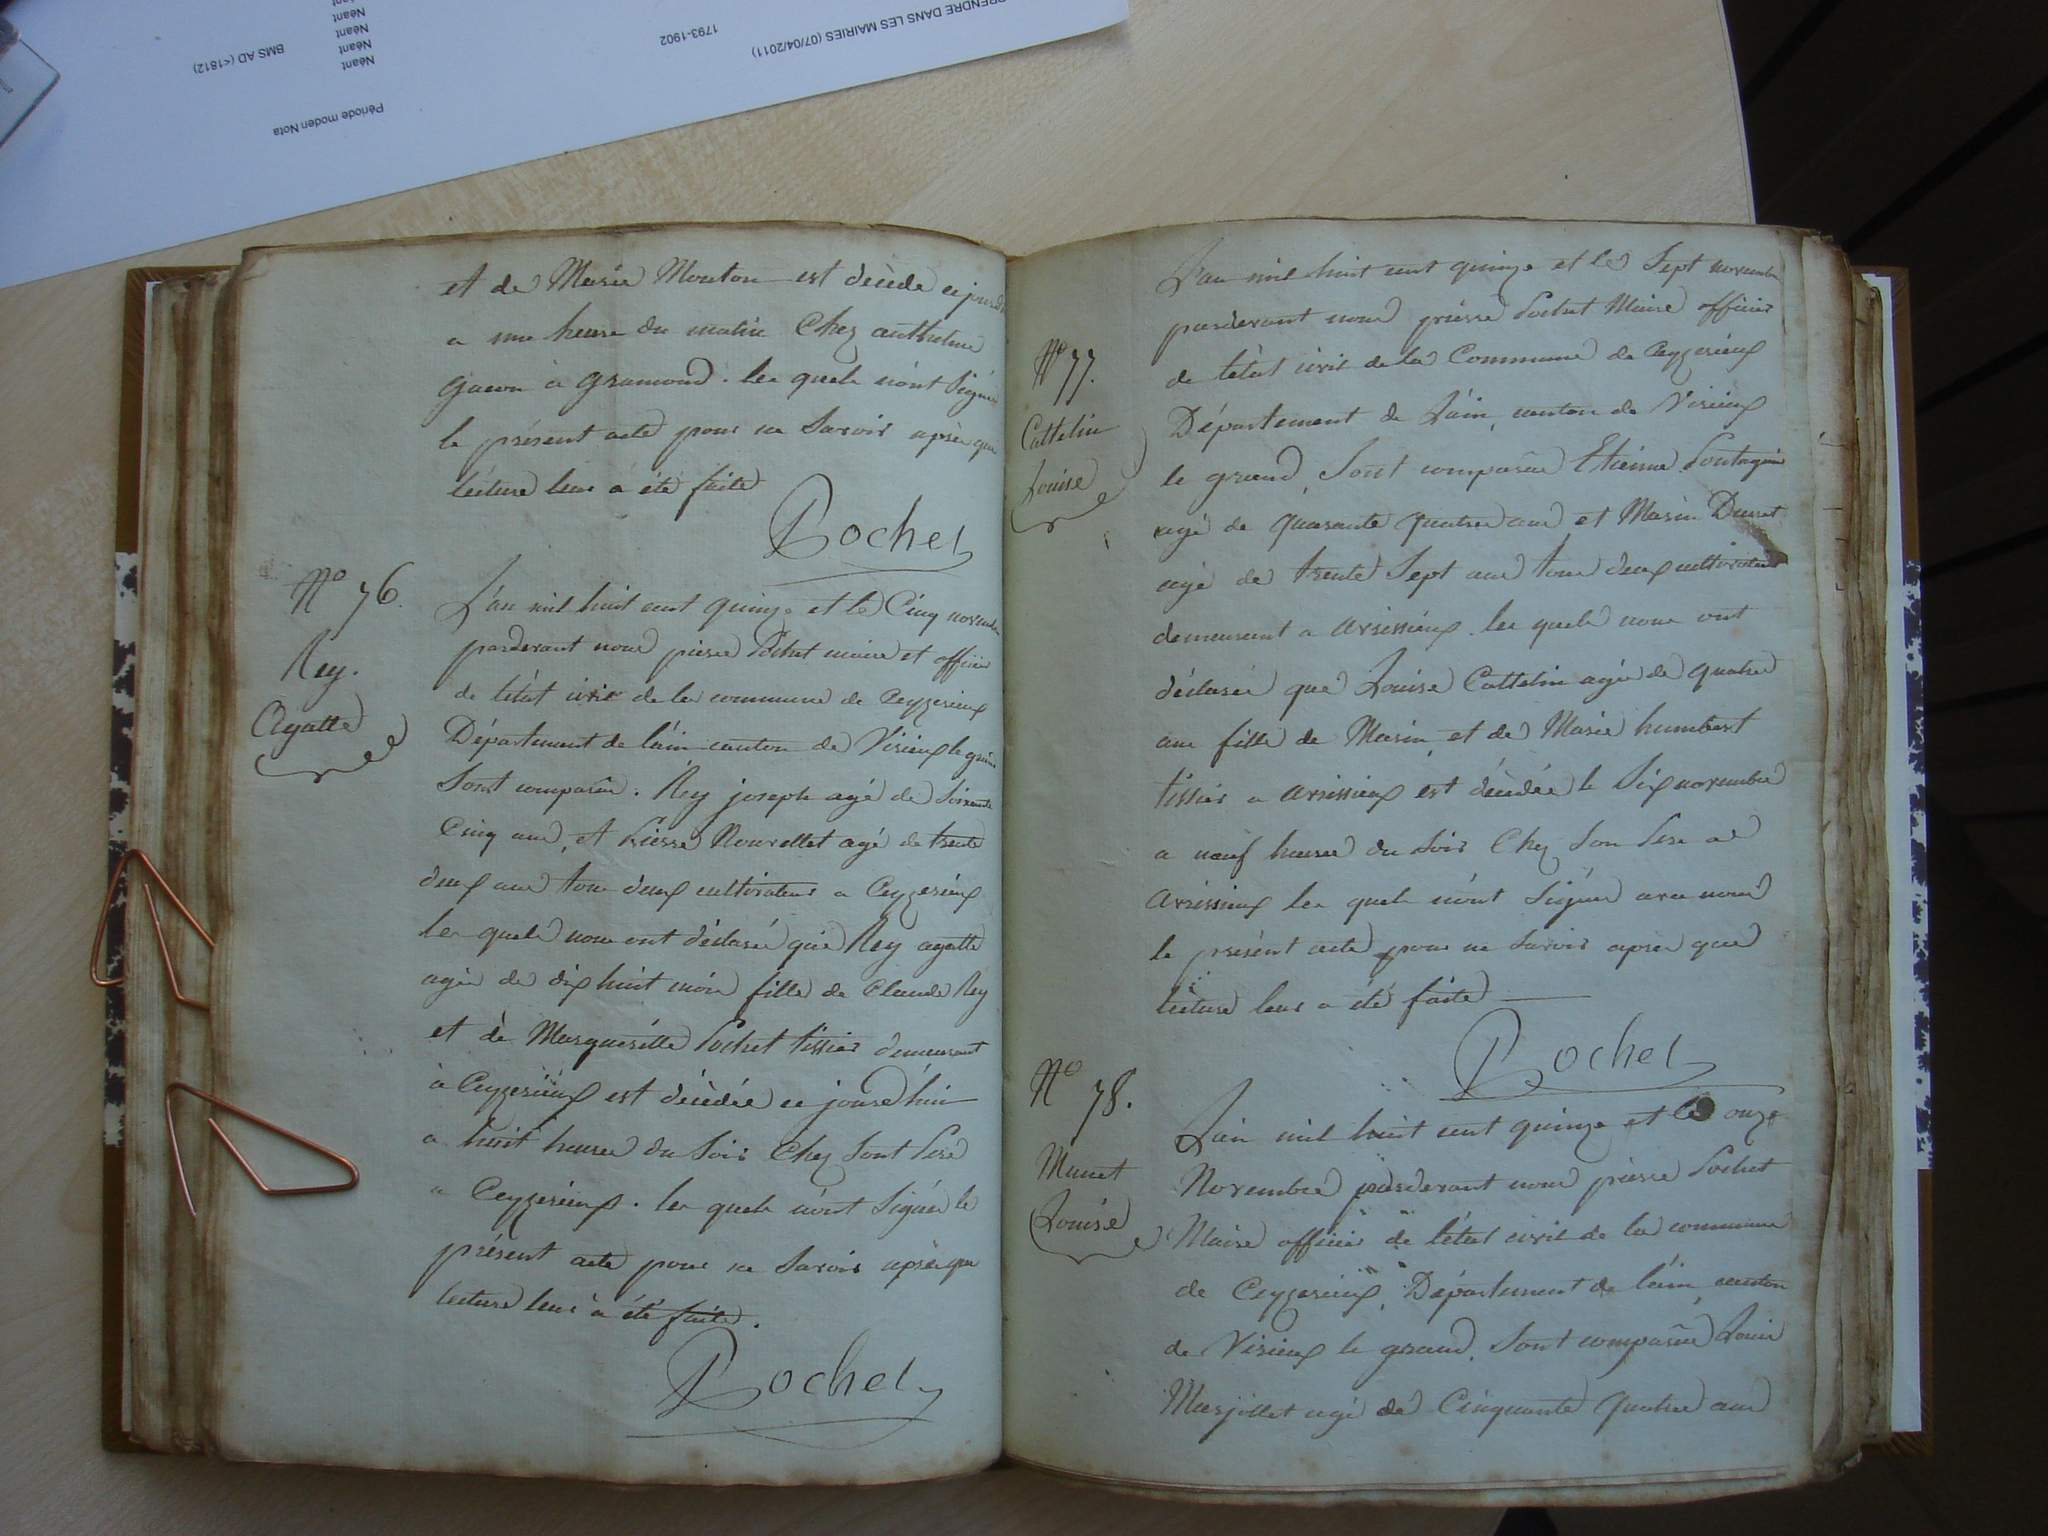 PRENDRE DANS LES MAIRIES (07/04/2011)
1793-1902
BMS AD (<1812)
Néant
Néant
Néant
Néant
Période moden Nota
et de Marie Mouton est décédé cejourd
a une heure du matin Chez anthelme
gacon à gramond. les quels n'ont Signé
le présent acte pour ne Savoir après que
lecture leur a été faite
Pochet
N° 76.
Rey.
Agatte
L'an mil huit cent quinze et le Cinq novembre
pardevant nous pierre Pochet maire et officier
de l'état civil de la commune de Ceyzerieux
Département de l'ain canton de Virieux le grand
Sont comparûs. Rey joseph agé de Soixante
Cinq ans, et Pierre Nouvellet agé de trente
deux ans tous deux cultivateurs a Ceyzerieux
les quels nous ont déclaré que Rey agatte
agée de dix huit mois fille de Claude Rey
et de Margueritte Pochet tissier demeurant
à Ceyzerieux est décédée ce jourd'hui
a huit heures du Soir Chez Sont Pere
a Ceyzerieux. les quels n'ont Signés le
présent acte pour ne Savoir après que
lecture leur à été faite.
Pochet
L'an mil huit cent quinze et le Sept novembre
pardevant nous pierre Pochet Maire officier
N° 77.
Cattelin
Louise
de l'état civil de la Commune de Ceyzerieux
Département de L'ain, canton de Virieux
le grand, Sont comparûs Etienne
agé de quarante quatre ans et Marin Durret
agé de trente Sept ans tous deux cultivateurs
demeurant a avrissieux. les quels nous ont
déclaré que Louise Cattelin agée de quatre
ans fille de Marin et de Marie humbert
tissier a avrissieux est décédée le Six novembre
a neuf heures du Soir Chez Son Pere a
avrissieux les quels n'ont Signés avec nous
le présent acte pour ne Savoir après que
lecture leur a été faite
Pochet
N° 78.
Munet
Louise
L'an mil huit cent quinze et le onze
Novembre pardevant nous pierre Pochet
Maire officier de l'état civil de la commune
de Ceyzerieux, Département de l'ain, canton
de Virieux le grand. Sont comparûs Louis
Marjollet agé de Cinquante quatre ans